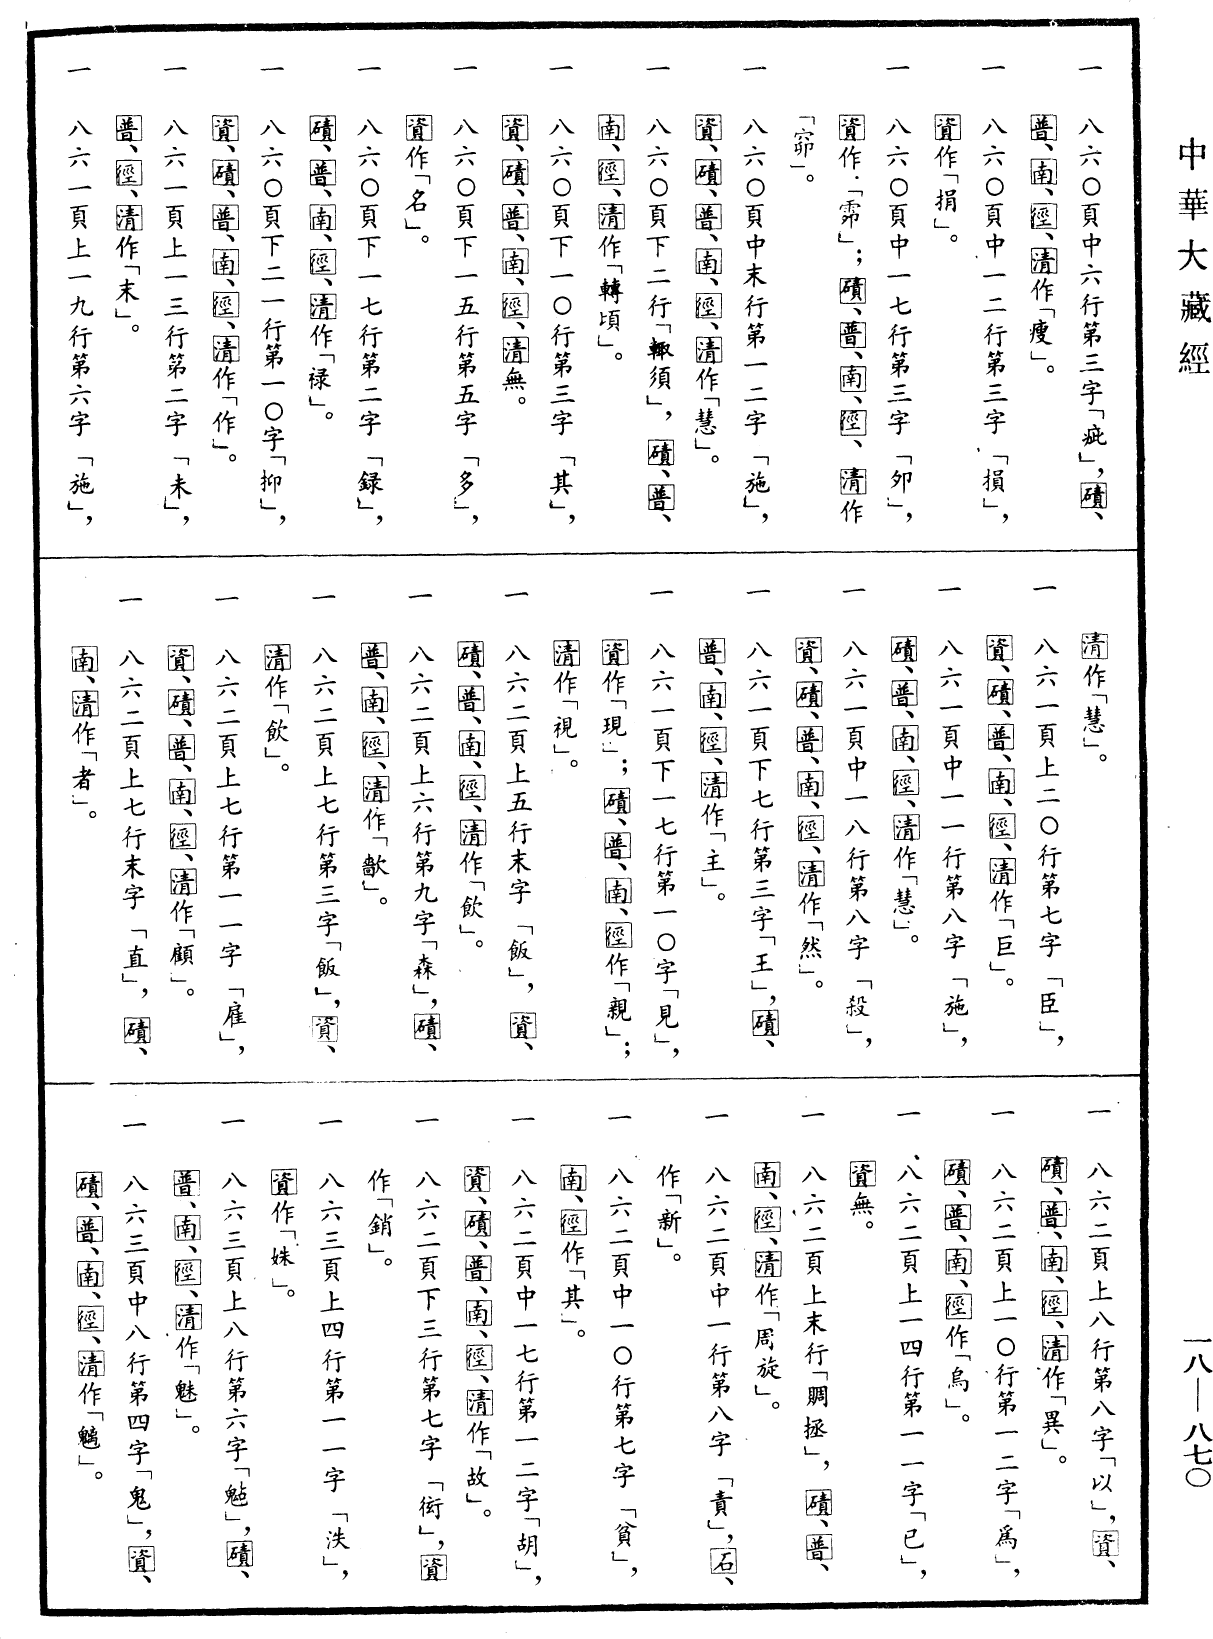 中華大藏經
一　八六〇頁中六行第三字「疵」，磧、
普、南、徑、清作「瘦」。
一　八六〇頁中一二行第三字「損」，
資作「捐」。
一　八六〇頁中一七行第三字「夘」，
資作「奅」；磧、普、南、徑、清作
「窌」。
一　八六〇頁中末行第一二字「施」，
資、磧、普、南、徑、清作「慧」。
一　八六〇頁下二行「輙須」，磧、普、
南、徑、清作「轉頃」。
一　八六〇頁下一〇行第三字「其」，
資、磧、普、南、徑、清無。
一　八六〇頁下一五行第五字「多」，
資作「名」。
一　八六〇頁下一七行第二字「録」，
磧、普、南、徑、清作「禄」。
一　八六〇頁下二一行第一〇字「抑」，
資、磧、普、南、徑、清作「作」。
一　八六一頁上一三行第二字「未」，
普、徑、清作「末」。
一　八六一頁上一九行第六字「施」，
清作「慧」。
一　八六一頁上二〇行第七字「臣」，
資、磧、普、南、徑、清作「巨」。
一　八六一頁中一一行第八字「施」，
磧、普、南、徑、清作「慧」。
一　八六一頁中一八行第八字「殺」，
資、磧、普、南、徑、清作「然」。
一　八六一頁下七行第三字「王」，磧、
普、南、徑、清作「主」。
一　八六一頁下一七行第一〇字「見」，
資作「現」；磧、普、南、徑作「親」；
清作「視」。
一　八六二頁上五行末字「飯」，資、
磧、普、南、徑、清作「飲」。
一　八六二頁上六行第九字「森」，磧、
普、南、徑、清作「歆」。
一　八六二頁上七行第三字「飯」，資、
清作「飲」。
一　八六二頁上七行第一一字「雇」，
資、磧、普、南、徑、清作「顧」。
一　八六二頁上七行末字「直」，磧、
南、清作「者」。
一　八六二頁上八行第八字「以」，資、
磧、普、南、徑、清作「異」。
一　八六二頁上一〇行第一二字「爲」，
磧、普、南、徑作「烏」。
一　八六二頁上一四行第一一字「已」，
資無。
一　八六二頁上末行「賙拯」，磧、普、
南、徑、清作「周旋」。
一　八六二頁中一行第八字「責」，石、
作「新」。
一　八六二頁中一〇行第七字「貧」，
南、徑作「其」。
一　八六二頁中一七行第一二字「胡」，
資、磧、普、南、徑、清作「故」。
一　八六二頁下三行第七字「銜」，資
作「銷」。
一　八六三頁上四行第一一字「泆」，
資作「姝」。
一　八六三頁上八行第六字「魅」，磧、
普、南、徑、清作「魅」。
一　八六三頁中八行第四字「鬼」，資、
磧、普、南、徑、清作「魑」。
一八—八七〇